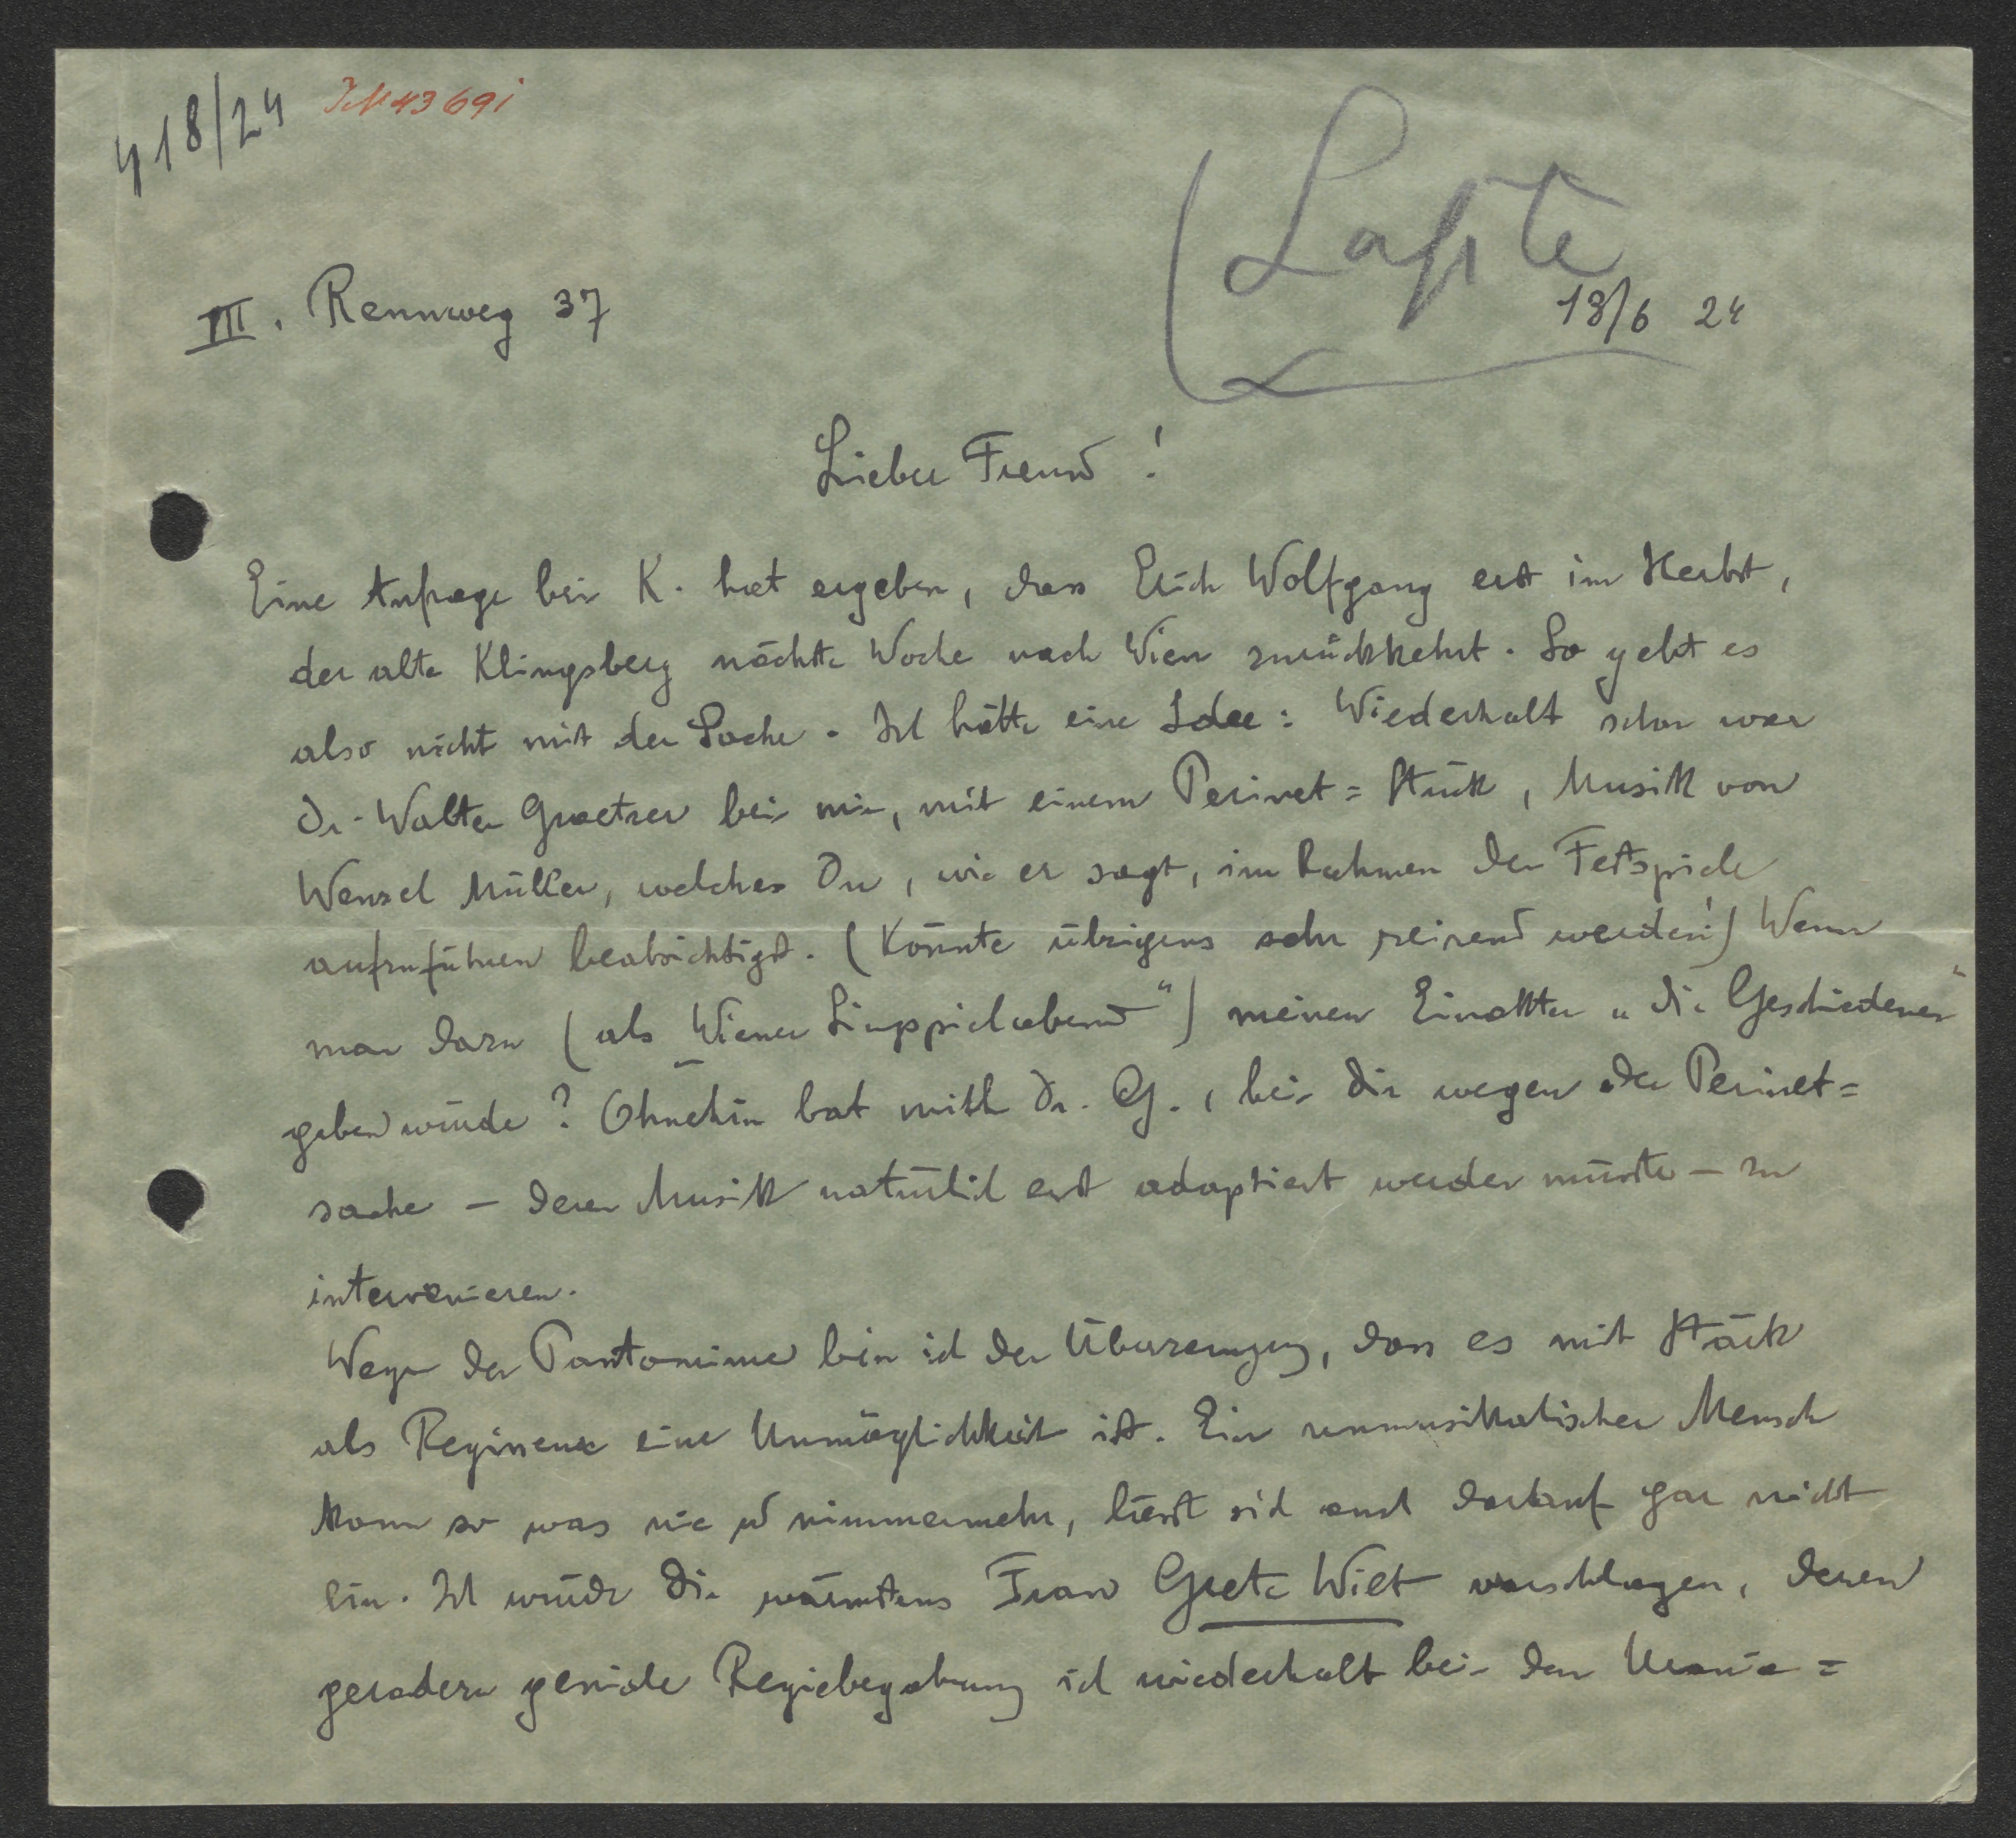 418/24 JN 43691
Lafite
III. Rennweg 37
18/6 24
Lieber Freund!
Eine Anfrage bei K. hat ergeben, dass Erich Wolfgang erst im Herbst,
der alte Klingsberg nächste Woche nach Wien zurückkehrt. So geht es
also nicht mit der Sache. Ich hätte eine Idee: Wiederholt schon war
Dr. Walter Graetzer bei mir, mit einem Perinet= Stück, Musik von
Wenzel Müller, welches Du, wie er sagt, im Rahmen der Festspiele
aufzuführen beabsichtigst. (Könnte übrigens sehr reizend werden!) Wenn
man dazu (als Wiener Singspielabend“) meinen Einakter „die Geschiedenen“
geben würde? Ohnehin bat mich Dr. G., bei Dir wegen der Perinet=
sache – deren Musik natürlich erst adaptiert werden müsste – zu
intervenieren.
Wegen der Pantomime bin ich der Überzeugung, dass es mit Stärk
als Regisseur eine Unmöglichkeit ist. Ein unmusikalischer Mensch
kann so was nie u nimmermehr, lässt sich auch darauf gar nicht
ein. Ich würde Dir wärmstens Frau Grete Wiet vorschlagen, deren
geradezu geniale Regiebegabung ich wiederholt bei den Urania=